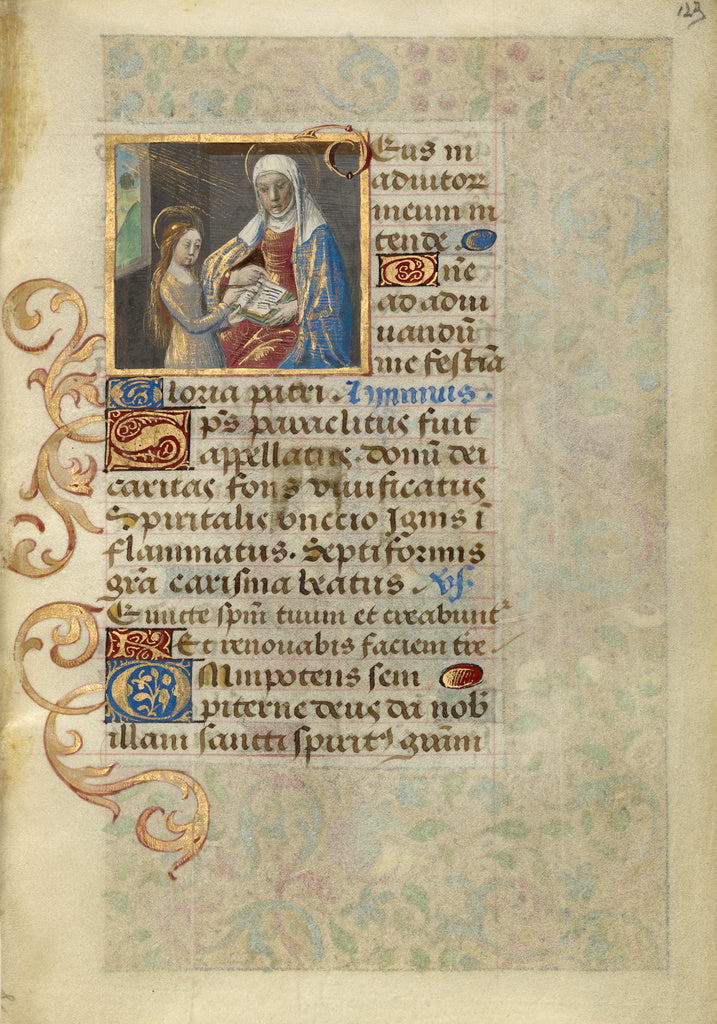 123
Deus in
adiutor
meum in
tende
Dn̄e
ad adiu
uandū
me festīa
Gloria patri. Hymnus.
Sp̄s paraclitus fuit
appellatus. donū dei
caritas fons viuificatus
Spiritalis vnccio Ignis ī
flammatus. Septiformis
gr̄a carisma beatus. vs.
Emitte spm̄ tuum et creabunt᷑
Et renouabis faciem tr̄e
Omnipotens sem
piterne deus da nob
illam sancti spiritꝰ grām